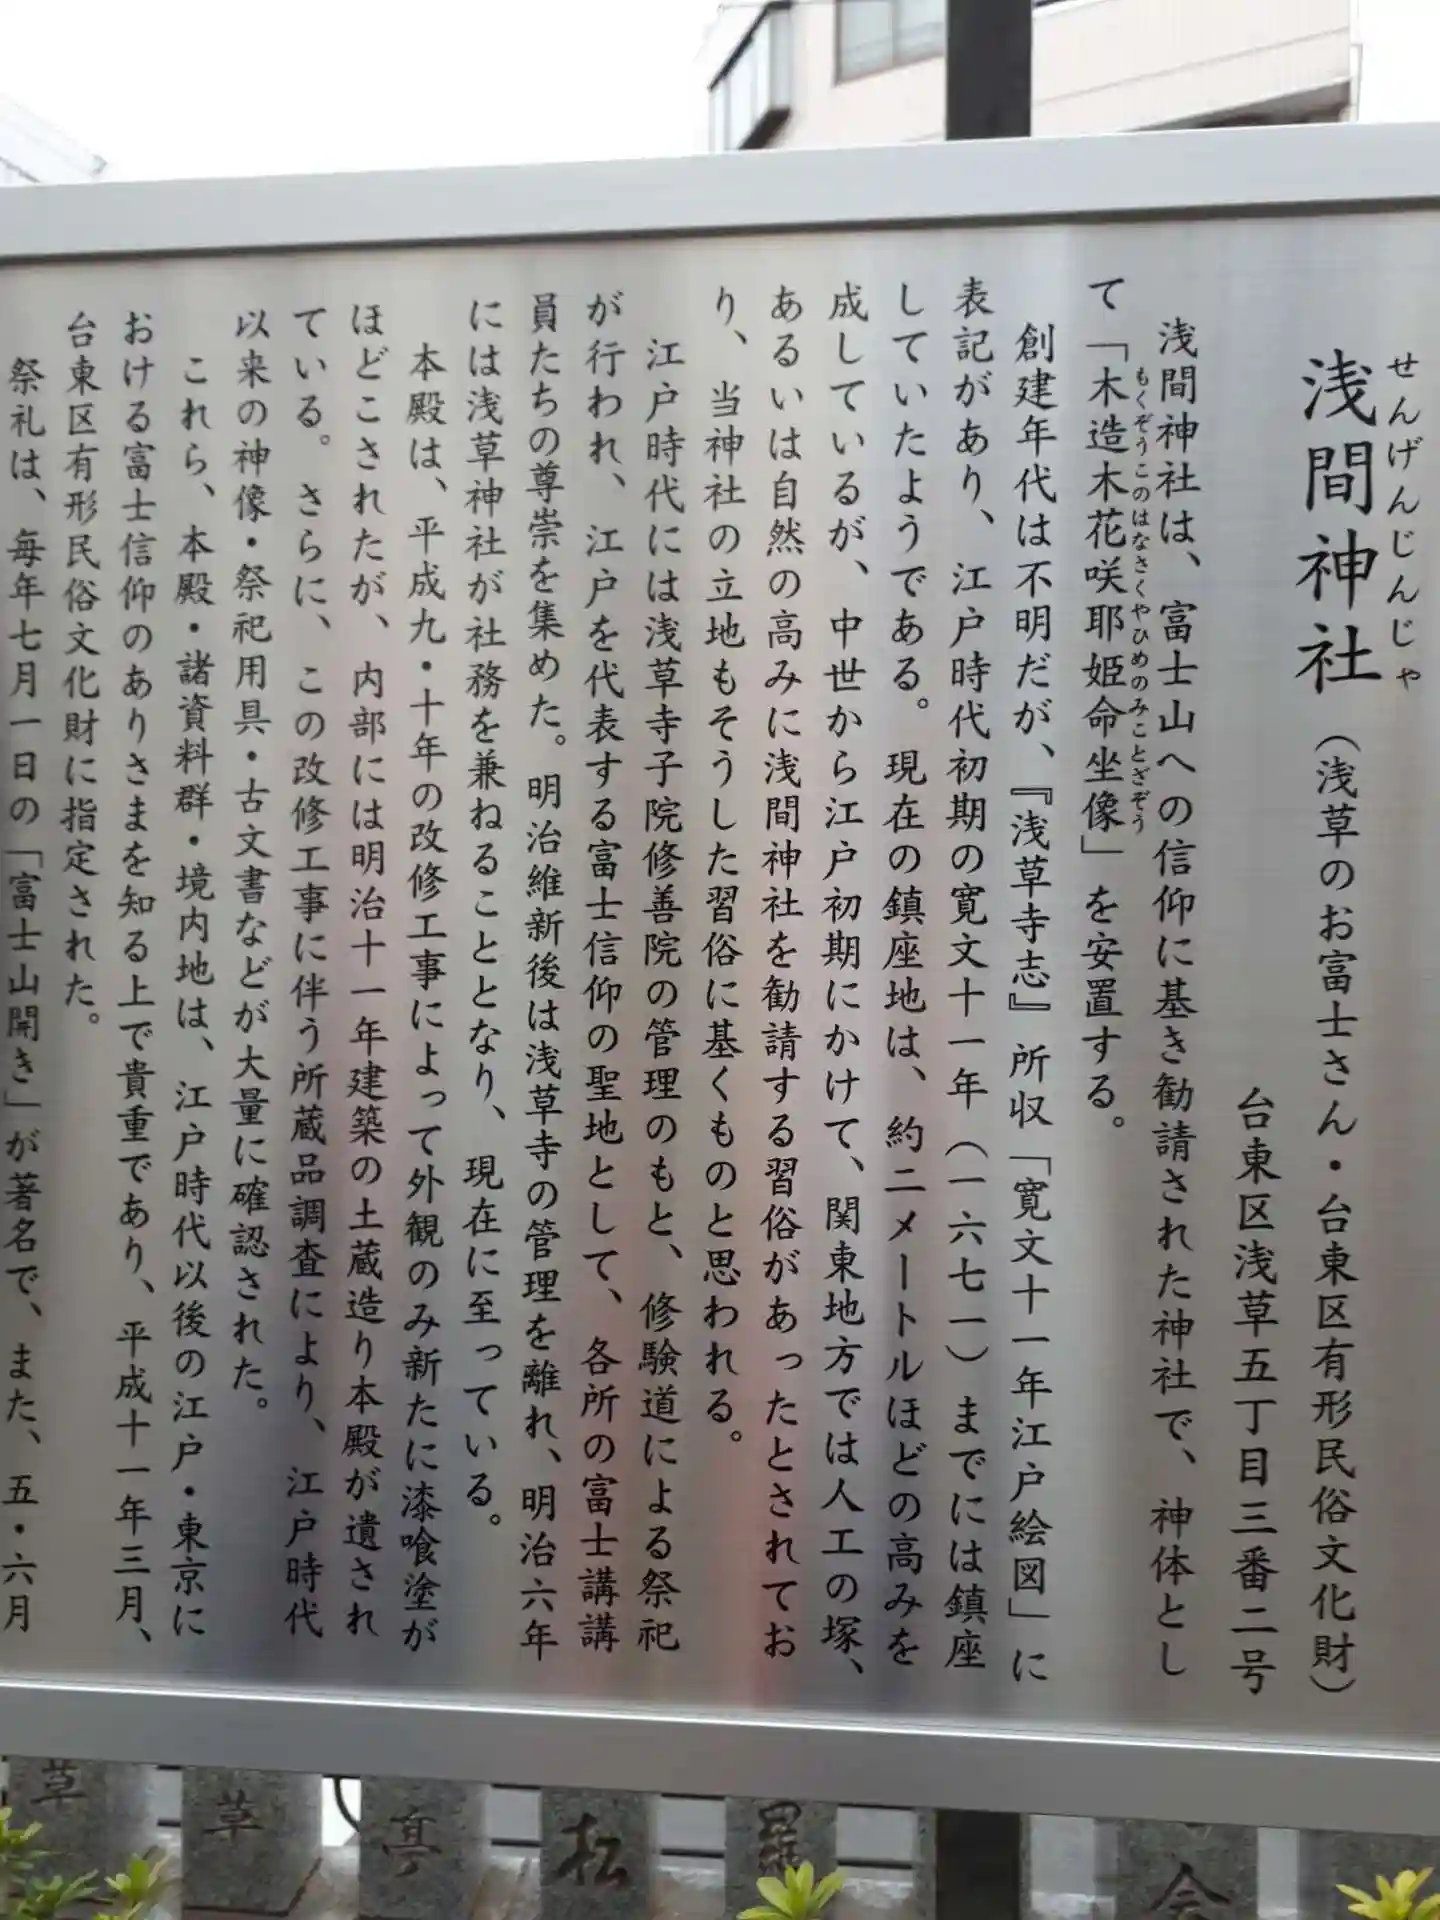 せんげんじんじゃ
浅間神社（浅草のお富士さん・台東区有形民俗文化財）
台東区浅草五丁目三番二号
浅間神社は、富士山への信仰に基き勧請された神社で、神体とし
もくぞうこのはなさくやひめのみことざぞう
て「木造木花咲耶姫命坐像」を安置する。
創建年代は不明だが、『浅草寺志』所収「寛文十一年江戸絵図」に
表記があり、江戸時代初期の寛文十一年（一六七一）までには鎮座
していたようである。現在の鎮座地は、約二メートルほどの高みを
成しているが、中世から江戸初期にかけて、関東地方では人工の塚、
あるいは自然の高みに浅間神社を勧請する習俗があったとされてお
り、当神社の立地もそうした習俗に基くものと思われる。
江戸時代には浅草寺子院修善院の管理のもと、修験道による祭祀
が行われ、江戸を代表する富士信仰の聖地として、各所の富士講講
員たちの尊崇を集めた。明治維新後は浅草寺の管理を離れ、明治六年
には浅草神社が社務を兼ねることとなり、現在に至っている。
本殿は、平成九・十年の改修工事によって外観のみ新たに漆喰塗が
ほどこされたが、内部には明治十一年建築の土蔵造り本殿が遺され
ている。さらに、この改修工事に伴う所蔵品調査により、江戸時代
以来の神像・祭祀用具・古文書などが大量に確認された。
これら、本殿・諸資料群・境内地は、江戸時代以後の江戸・東京に
おける富士信仰のありさまを知る上で貴重であり、平成十一年三月、
台東区有形民俗文化財に指定された。
祭礼は、毎年七月一日の「富士山開き」が著名で、また、五・六月
草
草
亭
松
羅
会